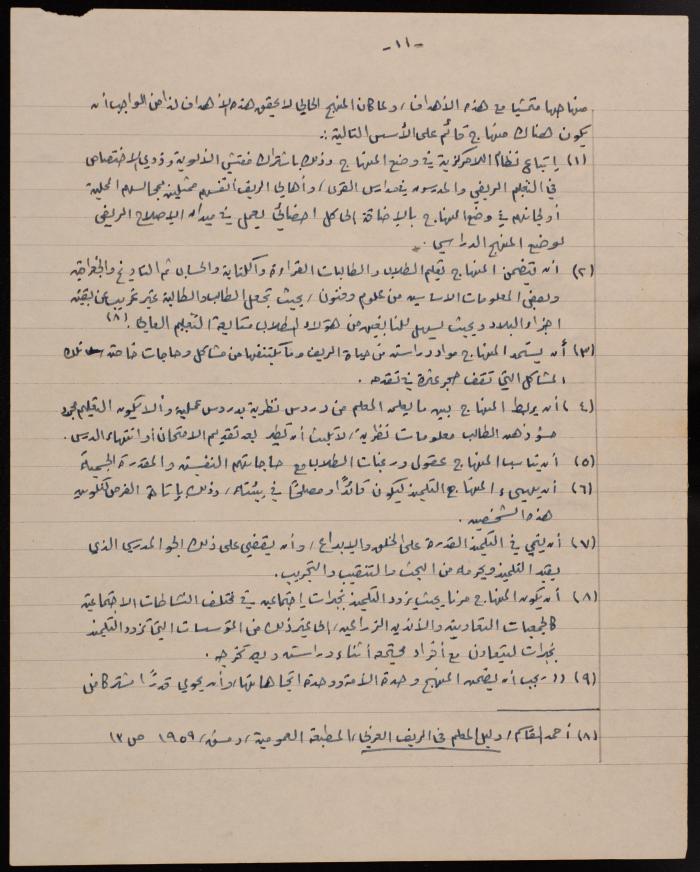 -١١-
منهاجها متمشيا مع هذه الأهداف، ولما كان المنهج الحالي لا يحقق هذه الأهداف لذا من الواجب أن
يكون هناك منهاج قائم على الأسس التالية :
(١) إتباع نظام اللامركزية في وضع المنهاج وذلك باشتراك مفتشي التربية وذوي الاختصاص
في التعليم الريفي والمدرسون في مدارس القرى، وأهالي الريف أنفسهم ممثلين بمجالسهم المحلية
أو لجانهم في وضع المنهاج بالإضافة إلى كل اخصائي يعمل في ميدان الإصلاح الريفي
لوضع المنهج الدراسي .
(٢) أن يتضمن المنهاج تعليم الطلاب والطالبات القراءة والكتابة والحساب ثم التاريخ والجغرافية
وبعض المعلومات الاساسية من علوم وفنون، بحيث تجعل الطالب والطالبة غير غريب عن بقية
اجزاء البلاد وبحيث يسهل للنابغين من هؤلاء الطلاب متابعة التعليم العالي. (٨)
(٣) أن يستمد المنهاج مواد دراسته من حياة الريف وما يكتنفها من مشاكل وحاجات خاصة تلك
المشاكل التي تقف حجر عثرة في تقدمه .
(٤) أن يربط المنهاج بين ما يعلمه المعلم من دروس نظرية بدروس عملية وألا يكون التعليم مجرد
حشو ذهن الطالب معلومات نظرية، لا تلبث أن تطير بعد تقديم الامتحان أو انتهاء الدرس .
(٥) أن يتناسب المنهاج عقول ورغبات الطلاب مع حاجاتهم النفسية والمقدرة الجسمية
(٦) أن يهيىء المنهاج التلميذ ليكون قائداً ومصلحاً في بيئته، وذلك بإتاحة الفرص لتكوين
هذه الشخصية .
(٧) أن ينمي في التلميذ القدرة على الخلق والابداع، وأن يقضي على ذلك الجو المدرسي الذي
يقيد التلميذ ويحرمه من البحث والتنقيب والتجريب .
(٨) أن يكون المنهاج مرنا بحيث يزود التلميذ بخبرات إجتماعية في مختلف النشاطات الاجتماعية
كالجمعيات التعاونية والأندية الزراعية، إلى غير ذلك من المؤسسات التي تزود التلميذ
بخبرات ليتعاون مع أفراد مجتمعه أثناء دراسته وبعد تخرجه .
(٩) (( يجب أن يضمن المنهج وحدة الأمة ووحدة اتجاهاتها، وأن يحوي قدراً مشتركا من
(٨) أحمد القسام، دليل المعلم في الريف العربي، المطبعة العمومية، دمشق، ١٩٥٩ ص ١٣